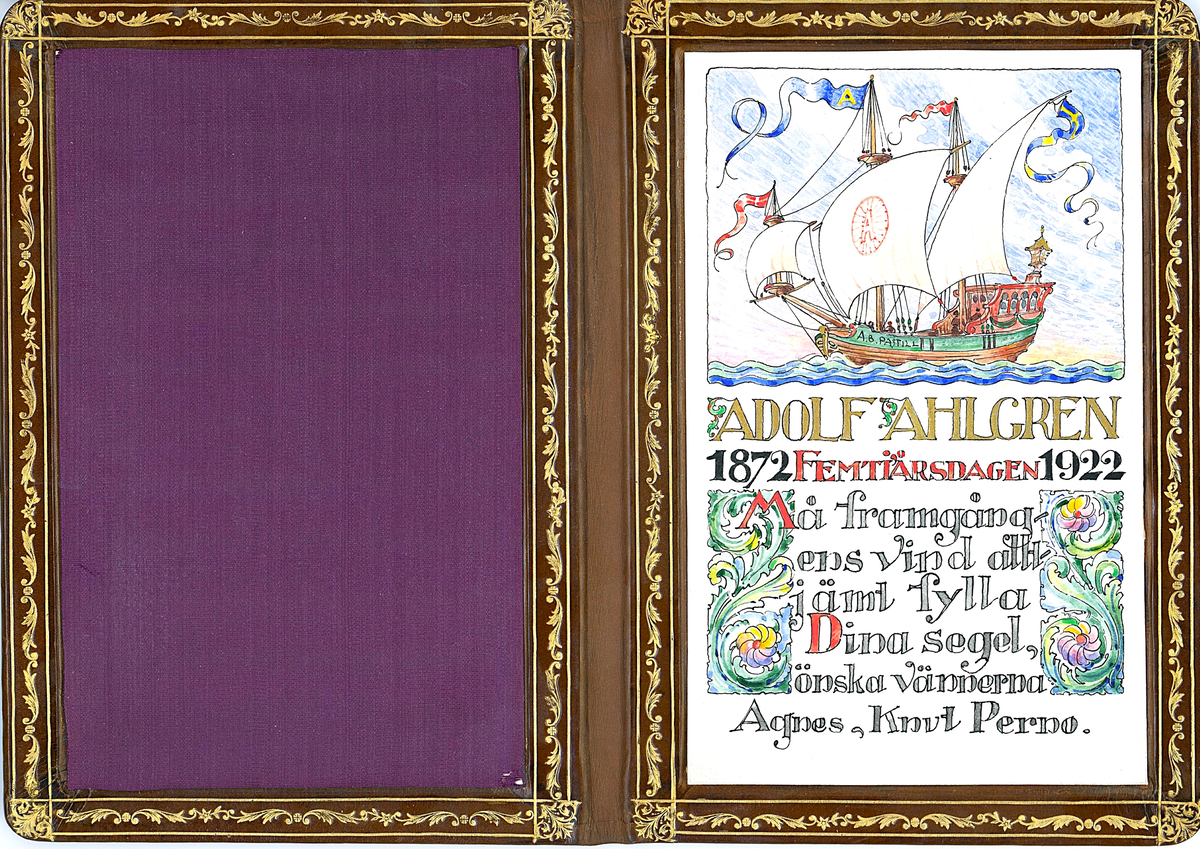 A
A
A.B. PASTILL
ADOLF AHLGREN
1872 FEMTIÅRSDAGEN 1922
Må framgång-
ens vind allt-
jämt fylla
Dina segel,
önska vännerna
Agnes, Knut Perno.